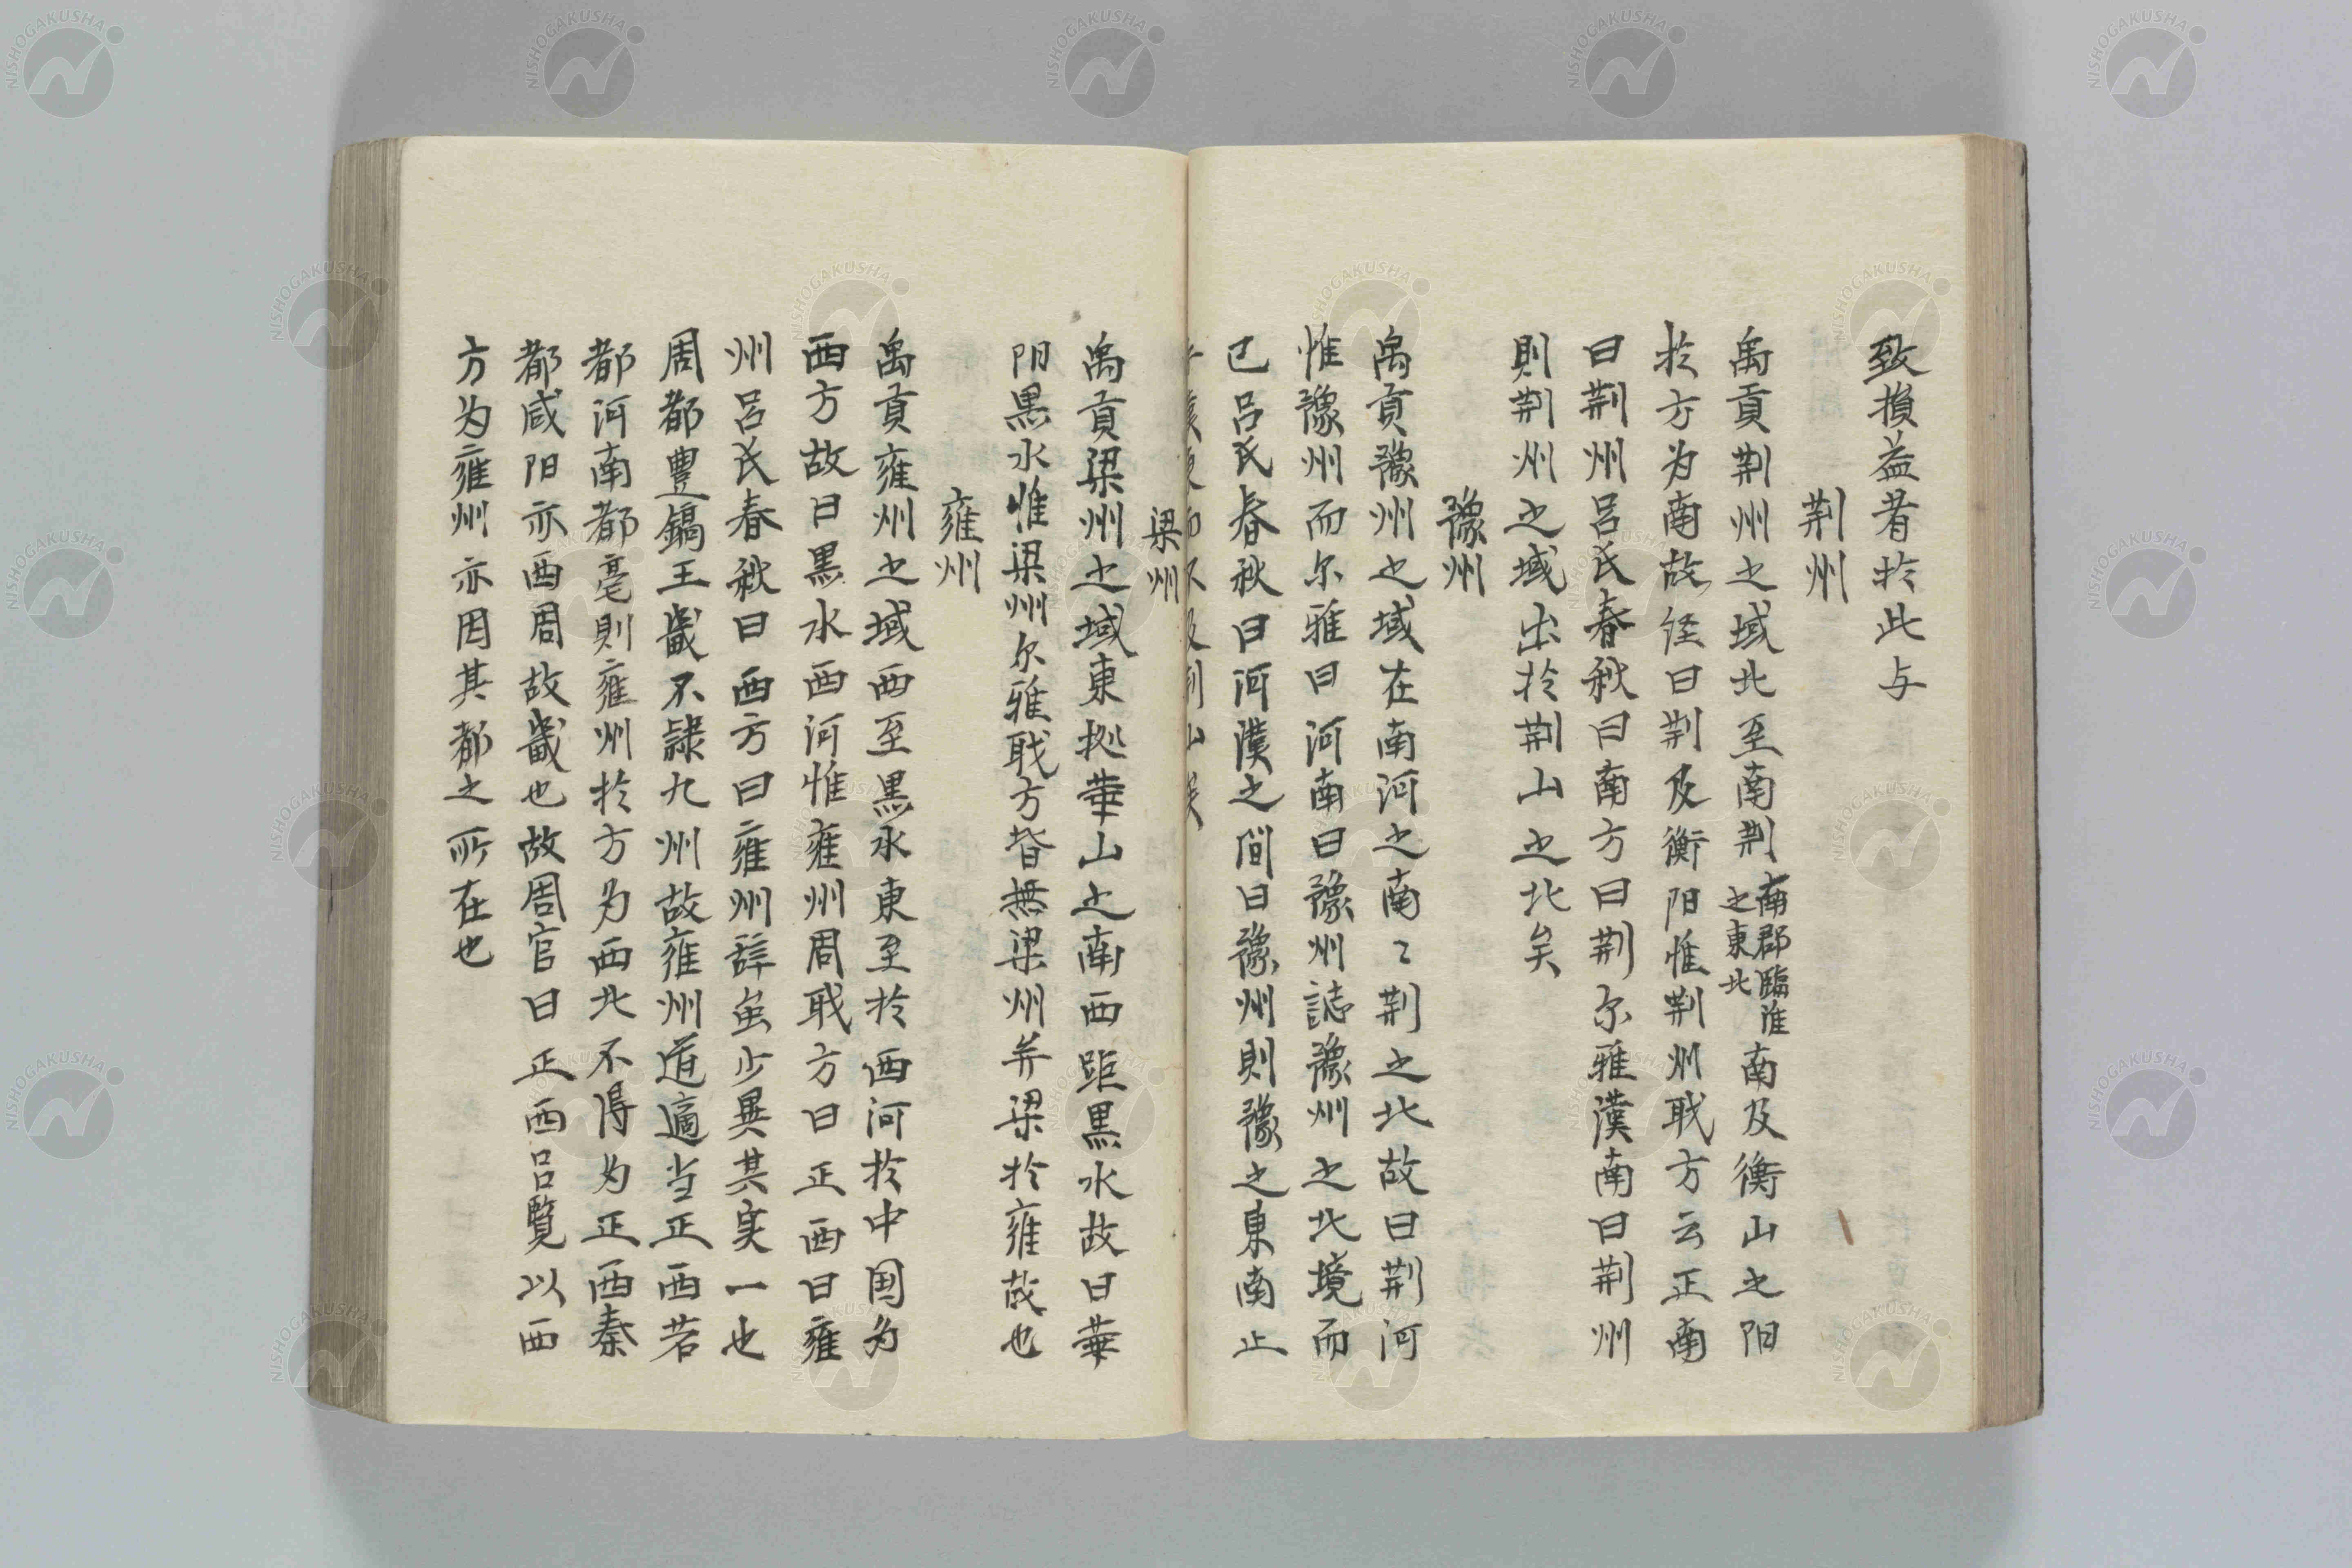 致損益者於此与
荆州
禹貢荆州之域北至南荆南郡臨淮之東北南及衡山之阳
於方为南故径曰荆及衡阳惟荆州职方云正南
曰荆州呂氏春秋曰南方曰荆尔雅漢南曰荆州
則荆州之域出於荆山之北矣
豫州
禹貢豫州之域在南河之南〻荆之北故曰荆河
惟豫州而尔雅曰河南曰豫州誌豫州之北境而
已呂氏春秋曰河漢之间曰豫州則豫之東南止
梁州
禹貢梁州之域東拠華山之南西距黒水故曰華
阴黒水惟梁州尔雅职方皆無梁州并梁於雍故也
雍州
禹貢雍州之域西至黒水東至於西河於中国为
西方故曰黒水西河惟雍州周职方曰正西曰雍
州呂氏春秋曰西方曰雍州辞虽少異其実一也
周都豊鎬王畿不隷九州故雍州道適当正西若
都河南都亳則雍州於方为西北不得为正西秦
都咸阳亦西周故畿也故周官曰正西呂覧以西
方为雍州亦因其都之所在也